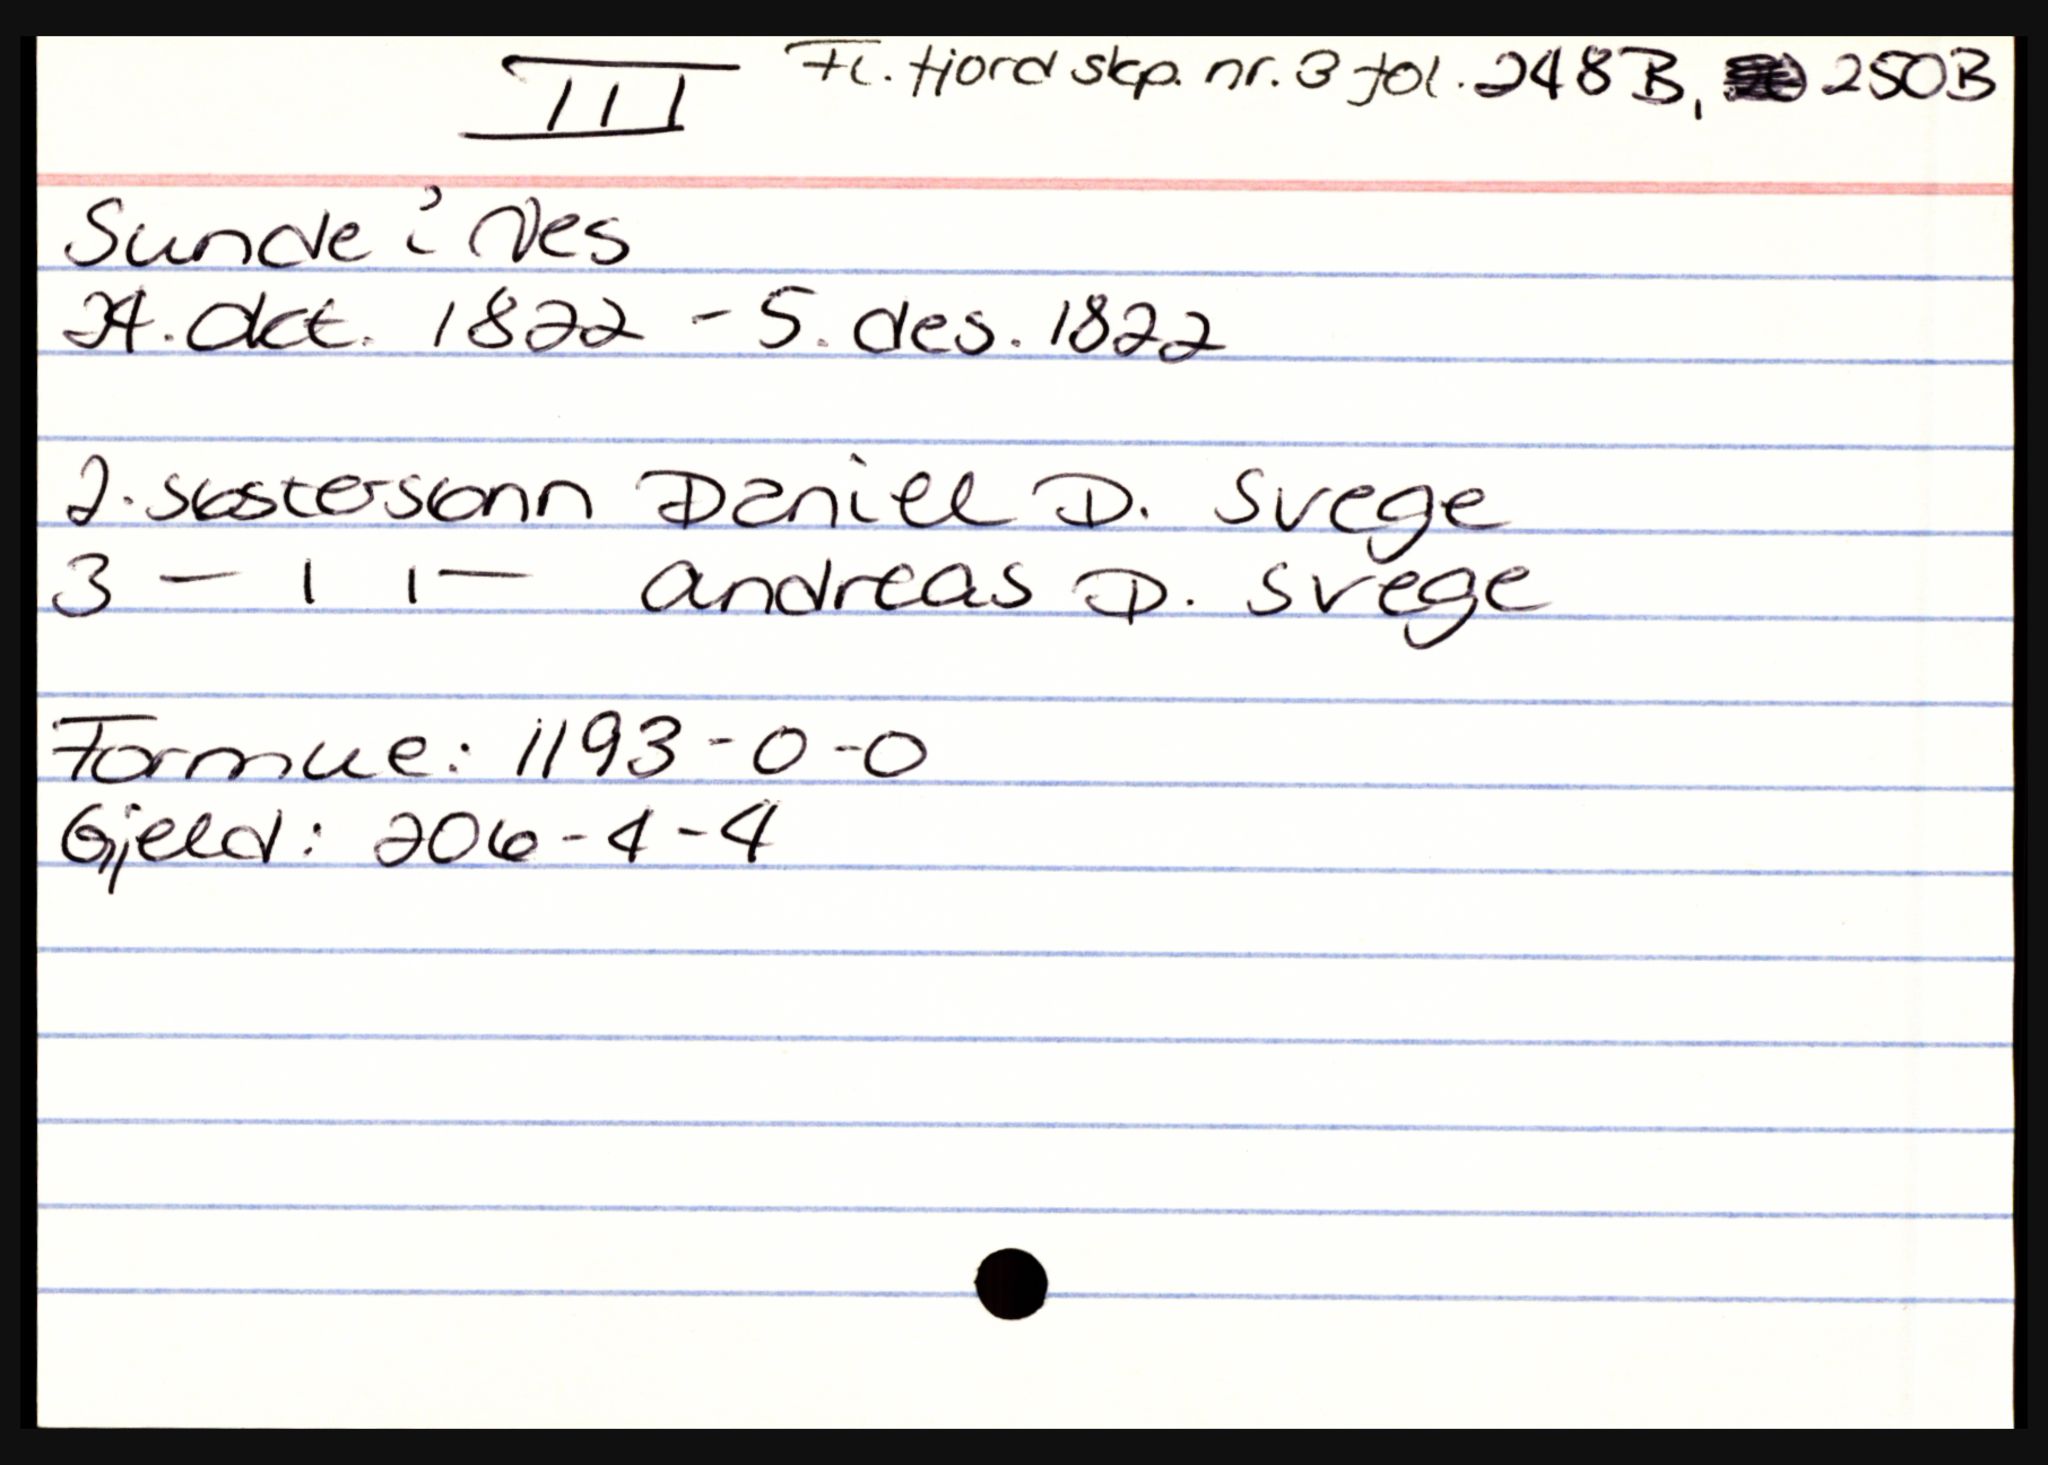 III Fl. fjord skp. nr. 3 fol. 248B, 250B
Sunde i Nes
24. okt. 1822 - 5. des. 1822
2. søstersønn Daniel D. Svege
3 — ı ı — Andreas D. Svege
Formue: 1193-0-0
Gjeld: 206-4-4